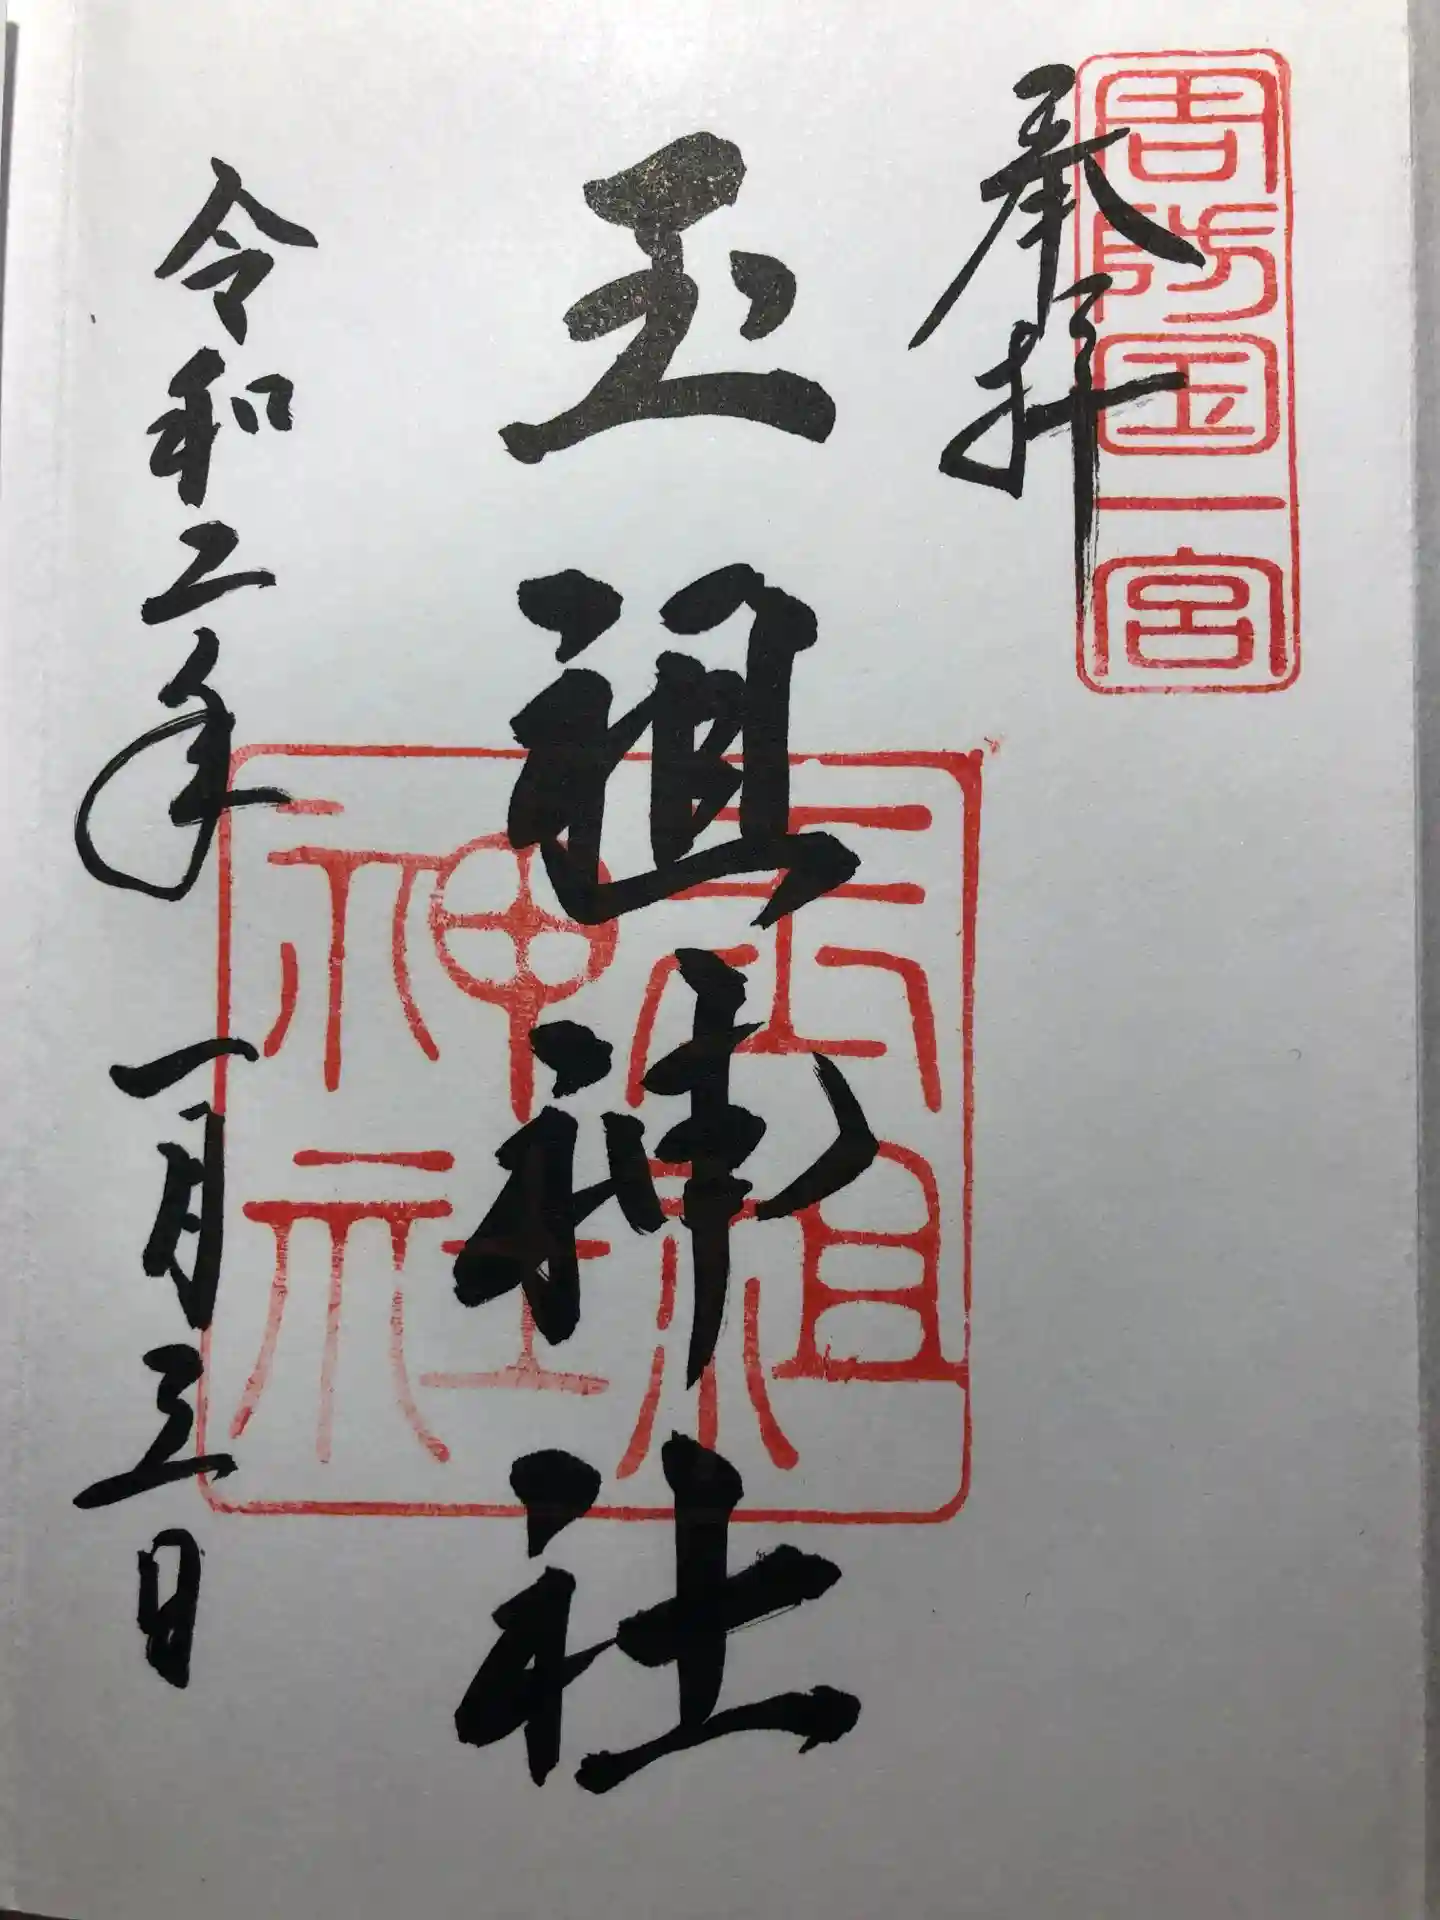 周防国一宮
奉拝
玉祖神社
玉祖
神社
令和二年一月三日